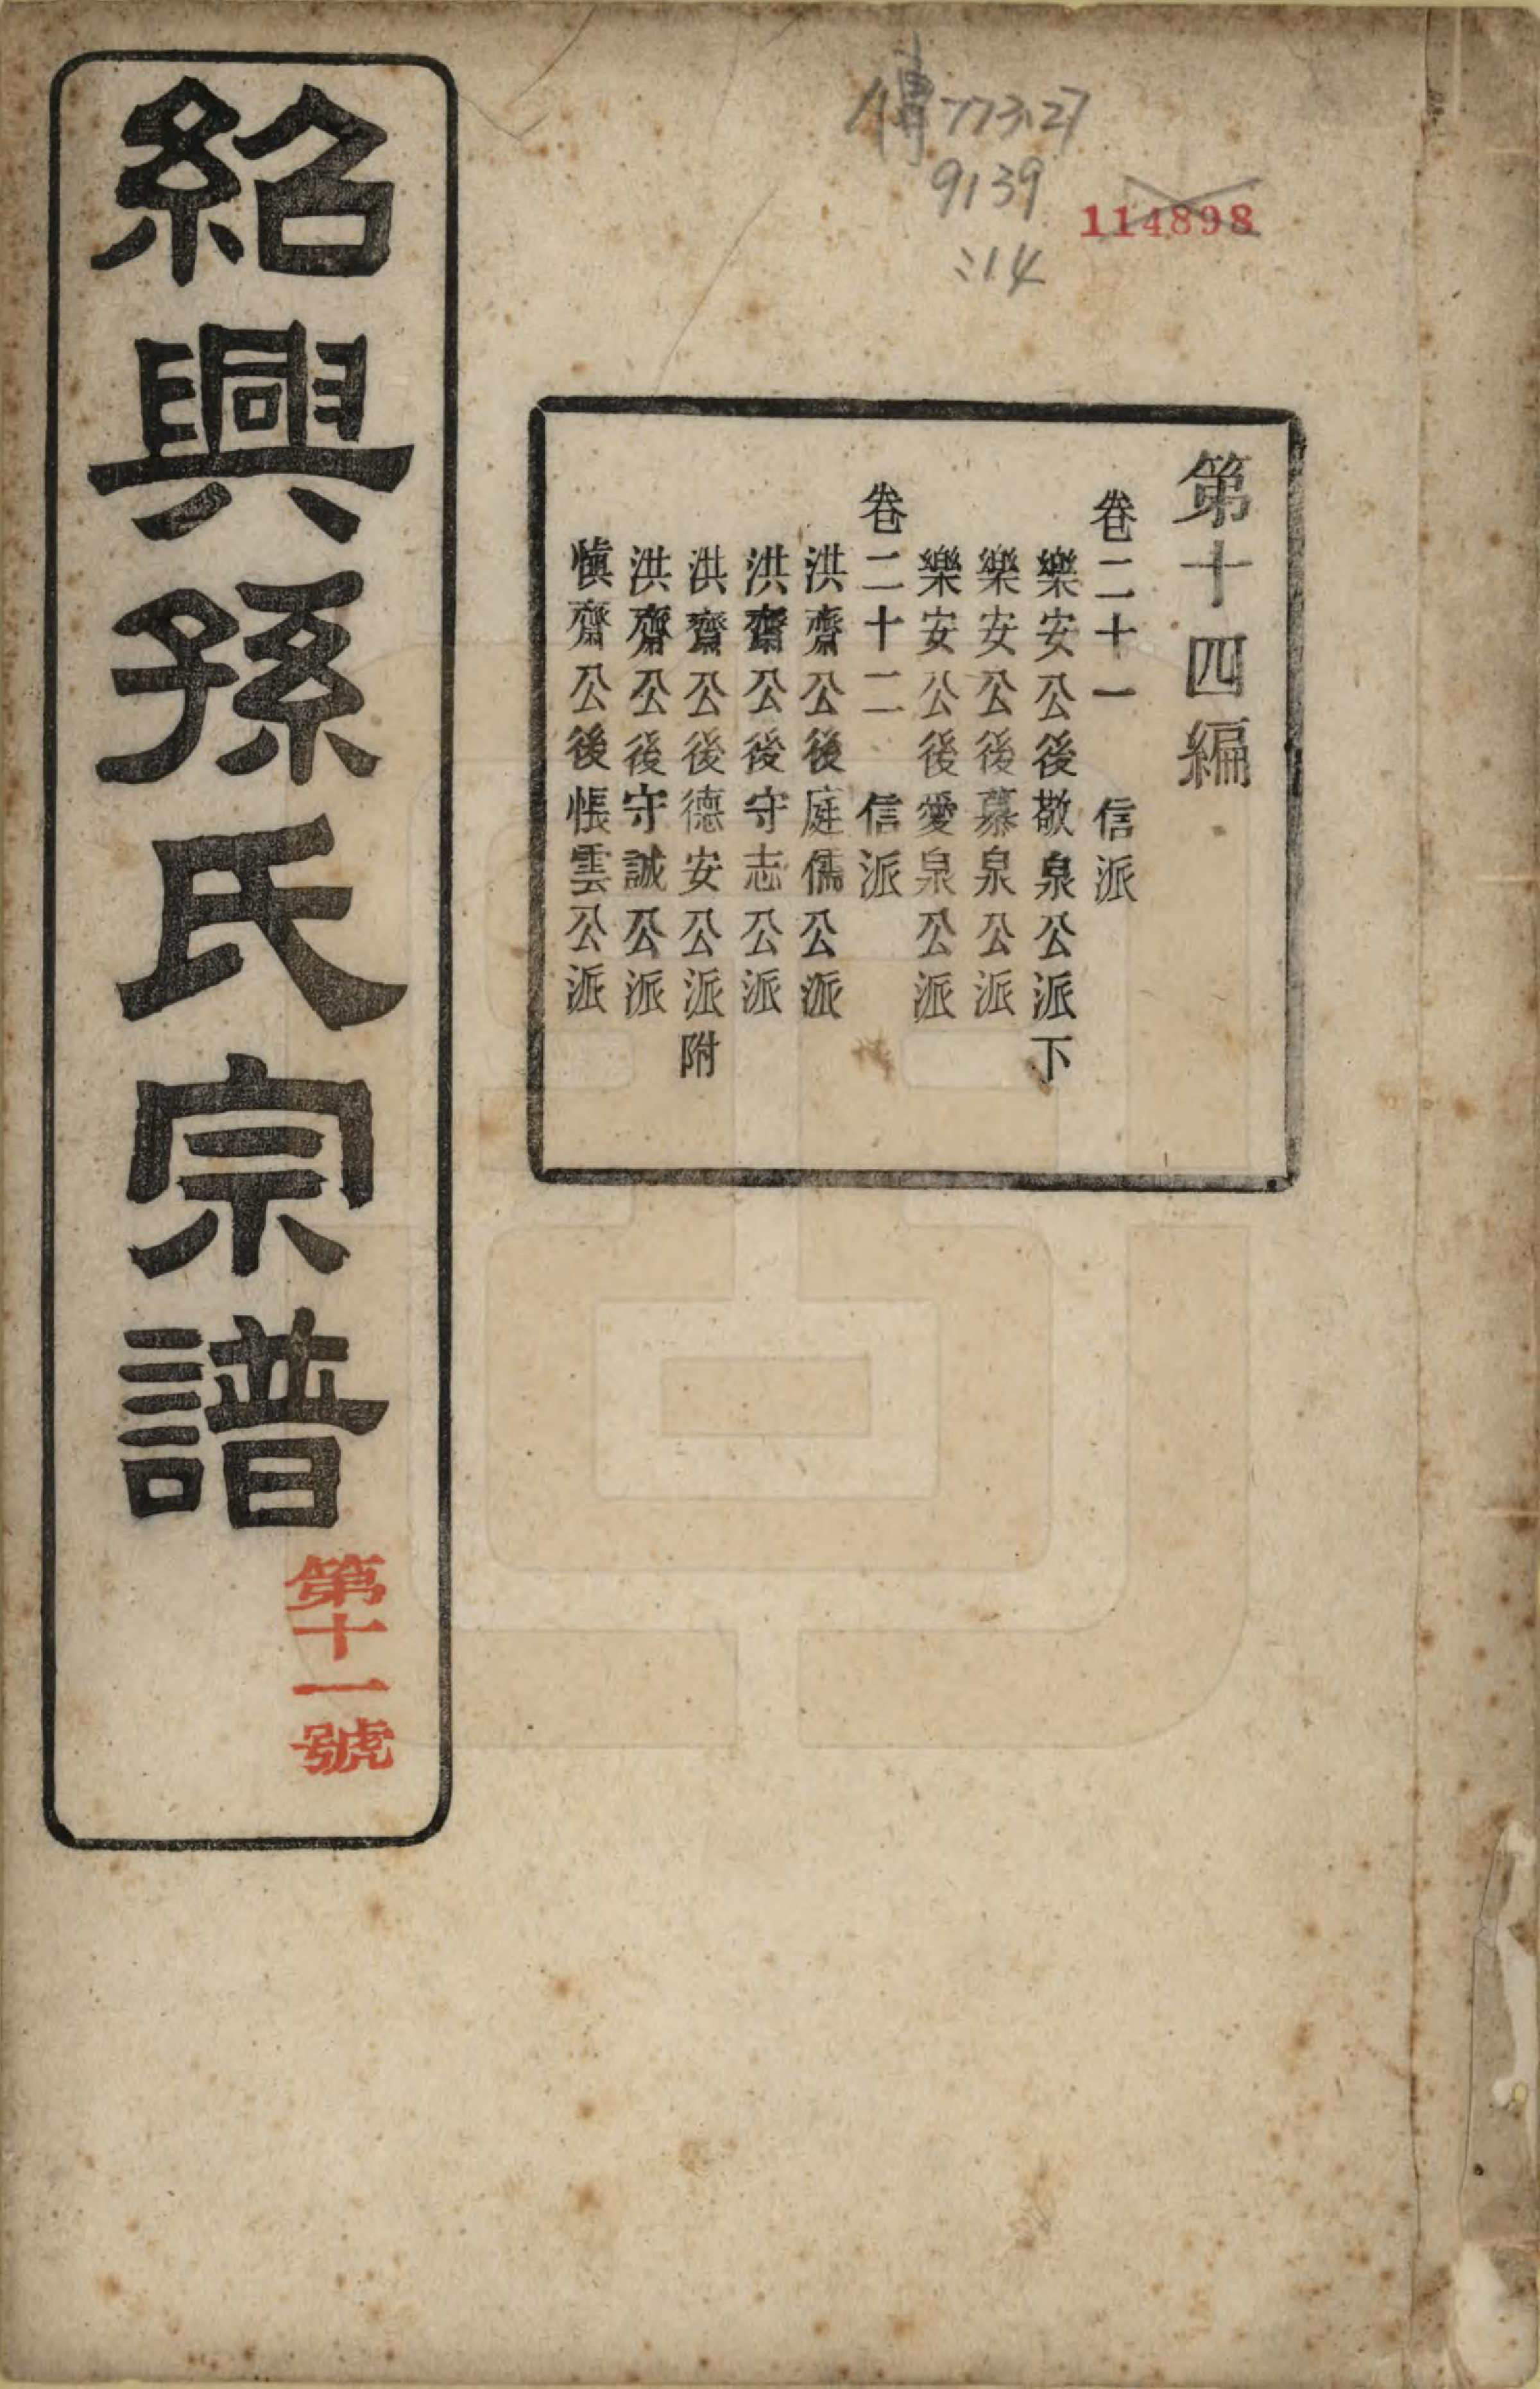 傳773.27
9139
:14
114898
第十四編
卷二十一 信派
樂安公後敬泉公派下
樂安公後慕泉公派
樂安公後愛泉公派
卷二十二 信派
洪齋公後庭儒公派
洪齋公後守志公派
洪齋公後德安公派附
洪齋公後守誠公派
慎齋公後悵雲公派
紹興孫氏宗譜
第十一號